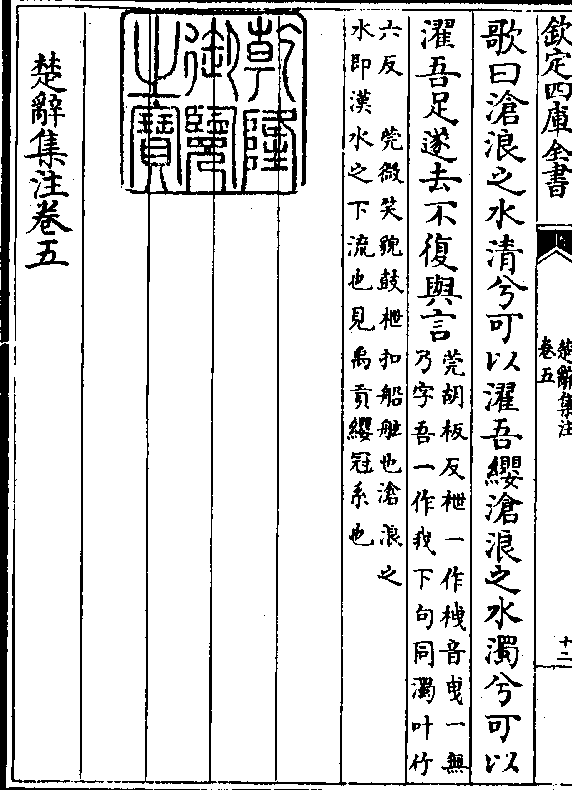 欽定四庫全書
楚辭集注
卷五
十二
歌曰滄浪之水清兮可以濯吾纓滄浪之水濁兮可以
濯吾足遂去不復與言
莞胡板反枻一作栧音曳一無
乃字吾一作我下句同濁叶竹
六反　莞微笑貌鼓枻扣船舷也滄浪之
水即漢水之下流也見禹貢纓冠系也
乾隆御覽之寶
楚辭集注卷五